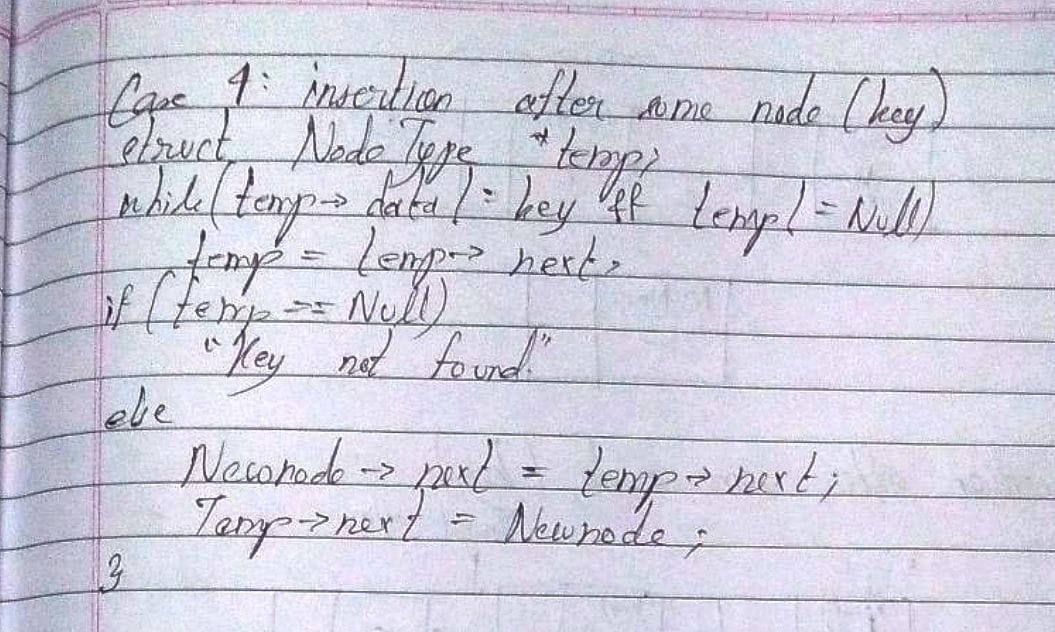 Case 4: insertion after some node (key)
struct NodeType *temp;
while(temp→data != key && temp != Null)
temp = temp→next;
if (temp == Null)
"Key not found"
else
Newnode → next = temp→next;
Temp→next = Newnode;
}